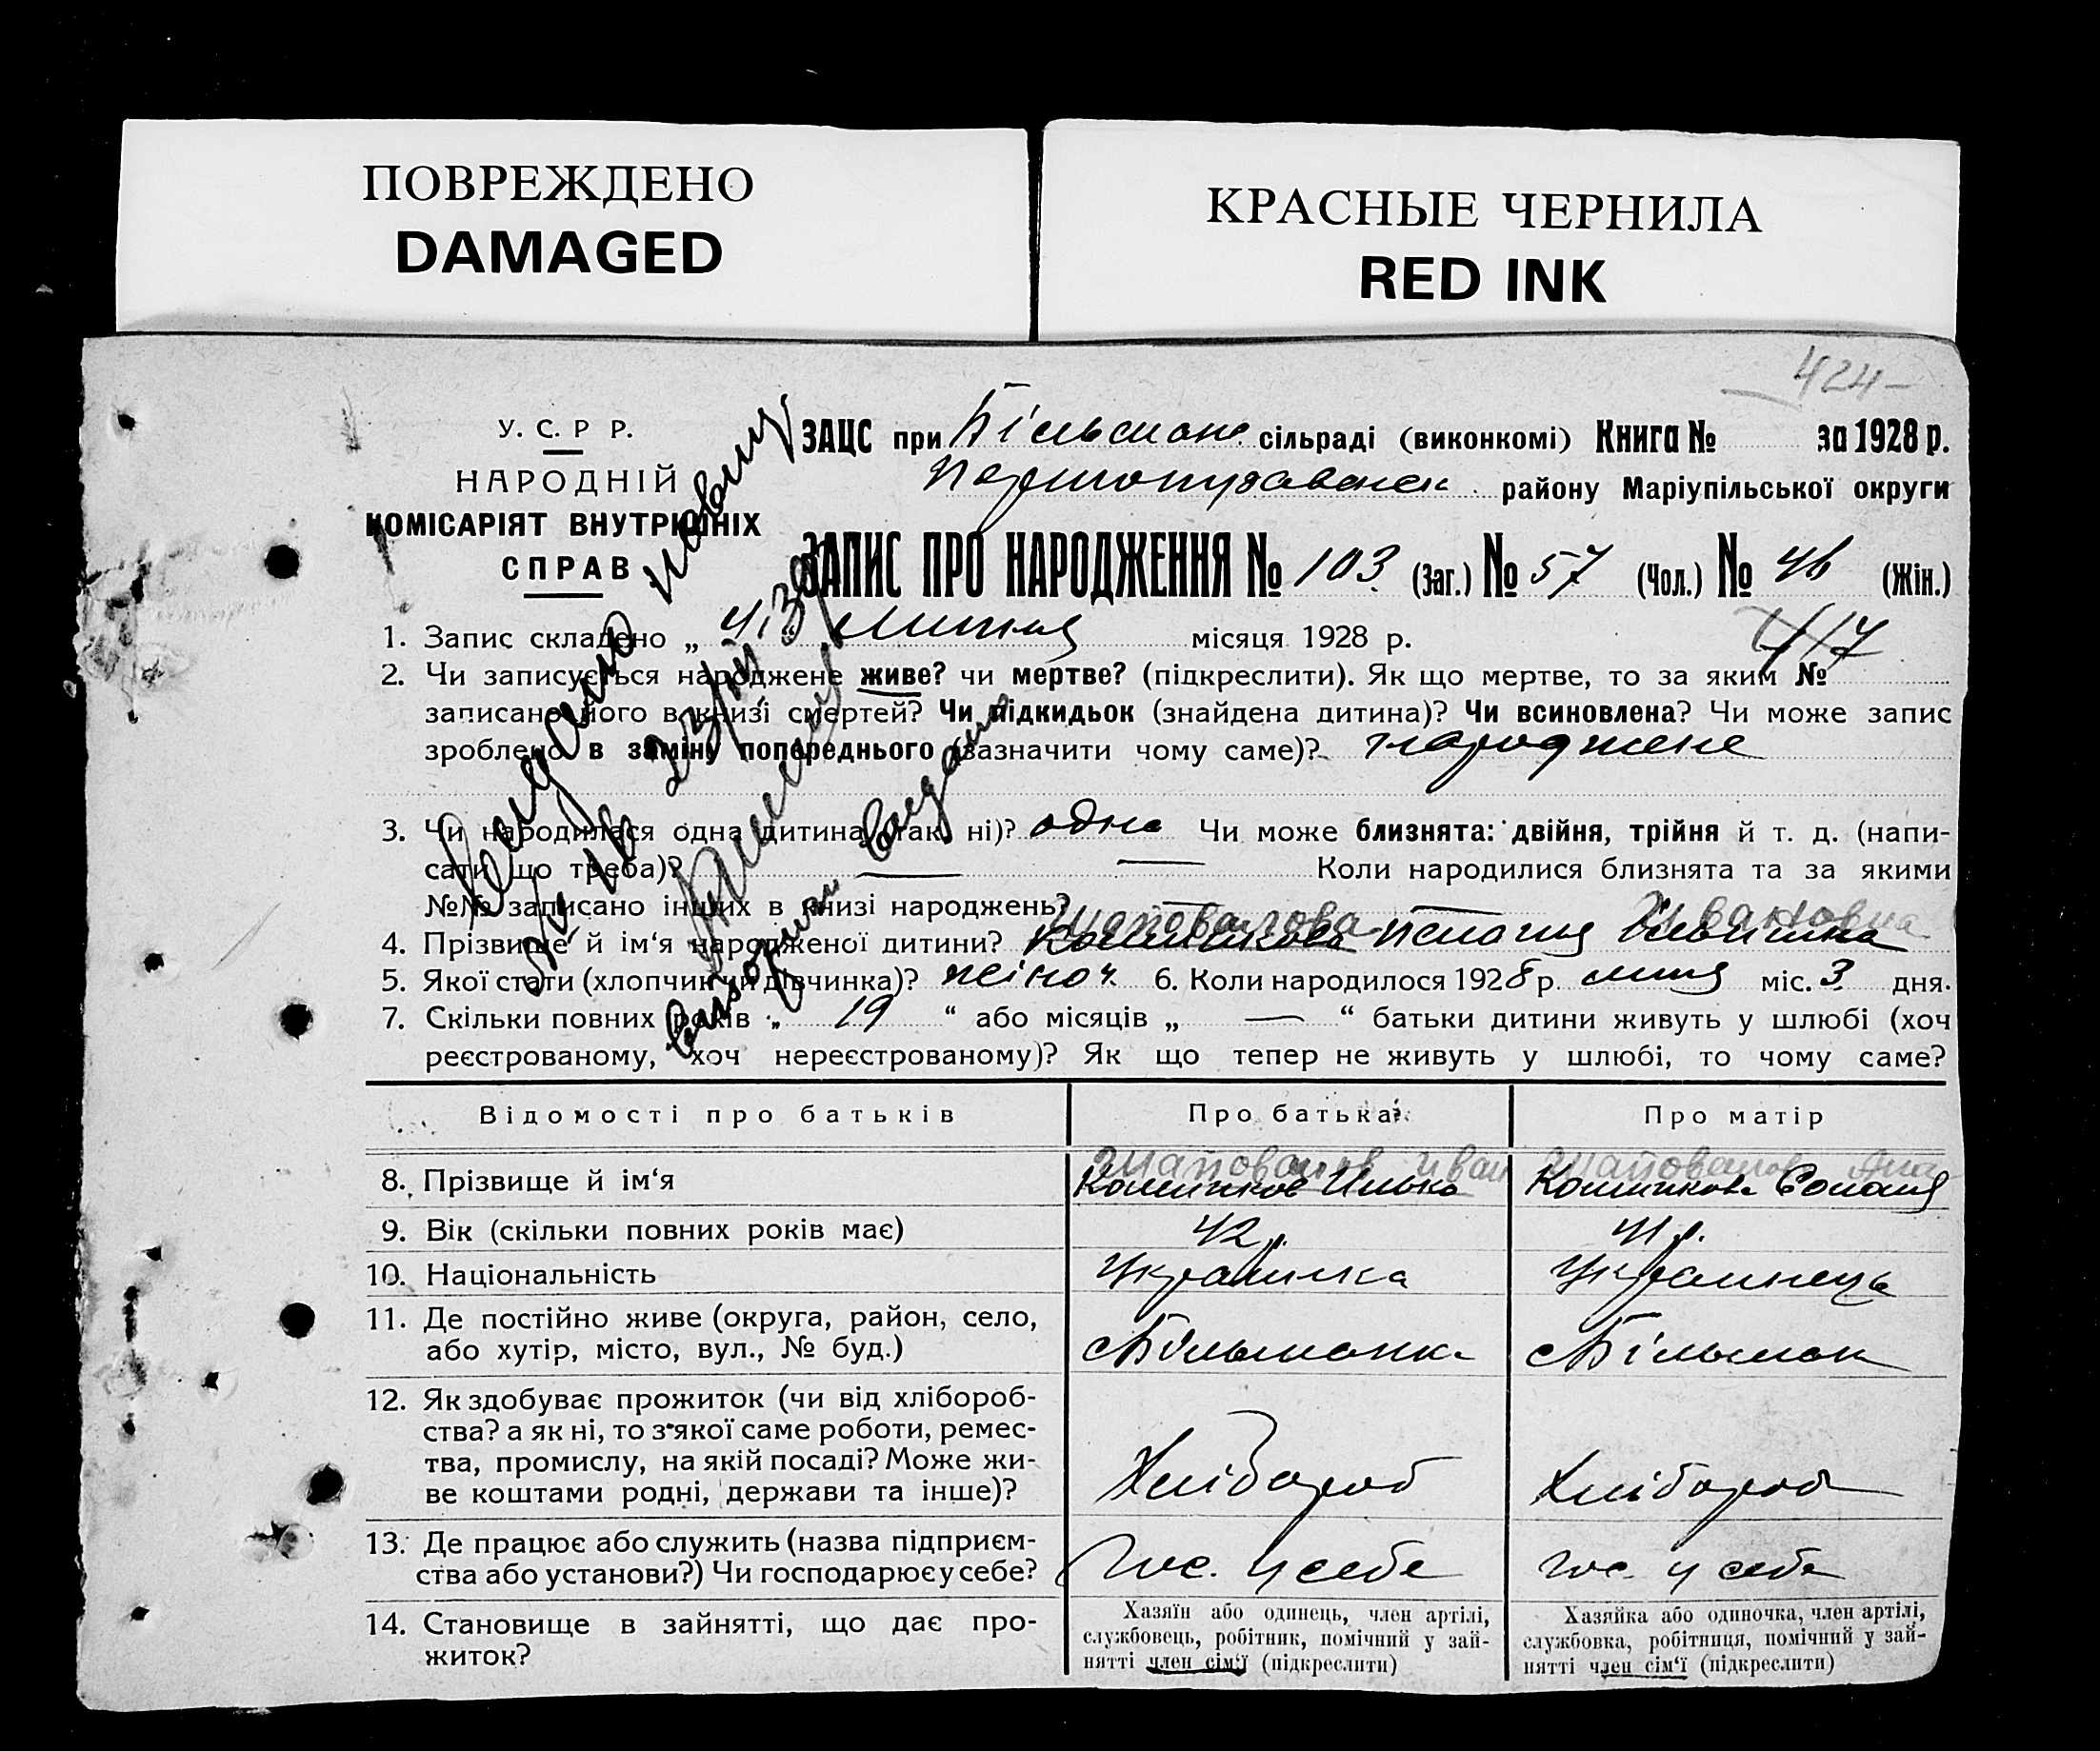 ПОВРЕЖДЕНО
DAMAGED
КРАСНЫЕ ЧЕРНИЛА
RED INK
424
У. С. Р Р.
НАРОДНІЙ
КОМІСАРІЯТ ВНУТРІШНІХ
СПРАВ
ЗАЦС при Більман. сільраді (виконкомі) Книга № за 1928 р.
району Маріупільської округи
ЗАПИС ПРО НАРОДЖЕННЯ № 103 (Заг.) № 57 (Чол.) № 46 (Жін.)
417
1. Запис складено „ 4 “ липня місяця 1928 р.
2. Чи записується народжене живе? чи мертве? (підкреслити). Як що мертве, то за яким №
записано його в книзі смертей? Чи підкидьок (знайдена дитина)? Чи всиновлена? Чи може запис
зроблено в заміну попереднього (зазначити чому саме)? народжене
3. Чи народилася одна дитина (так, ні)? одна Чи може близнята: двійня, трійня й т. д. (напи-
сати що треба)? — Коли народилися близнята та за якими
№№ записано інших в книзі народжень? —
Шаповалова Ивановна
4. Прізвище й ім‘я народженої дитини?
5. Якої статі (хлопчик чи дівчинка)? жіноч. 6. Коли народилося 1928 р. липня міс. 3 дня.
7. Скільки повних років „ 19 “ або місяців „ — “ батьки дитини живуть у шлюбі (хоч
реєстрованому, хоч нереєстрованому)? Як що тепер не живуть у шлюбі, то чому саме?
Відомості про батьків Про батька: Про матір
Шаповалов Иван Шаповалов
8. Прізвище й ім‘я
9. Вік (скільки повних років має) 42 р. 41 р.
10. Національність Українка Українець
11. Де постійно живе (округа, район, село,
або хутір, місто, вул., № буд.) с Більманка с Більман
12. Як здобуває прожиток (чи від хлібороб-
ства? а як ні, то з якої саме роботи, ремес-
тва, промислу, на якій посаді? Може жи-
ве коштами родні, держави та інше)? Хлібороб Хлібороб
13. Де працює або служить (назва підприєм-
ства або установи?) Чи господарює у себе? Гос. у себе Гос. у себе
14. Становище в зайнятті, що дає про-
житок?
Хазяїн або одинець, член артілі,
службовець, робітник, помічний у зай-
нятті член сім‘ї (підкреслити)
Хазяйка або одиночка, член артілі,
службовка, робітниця, помічний у зай-
нятті член сім‘ї (підкреслити)